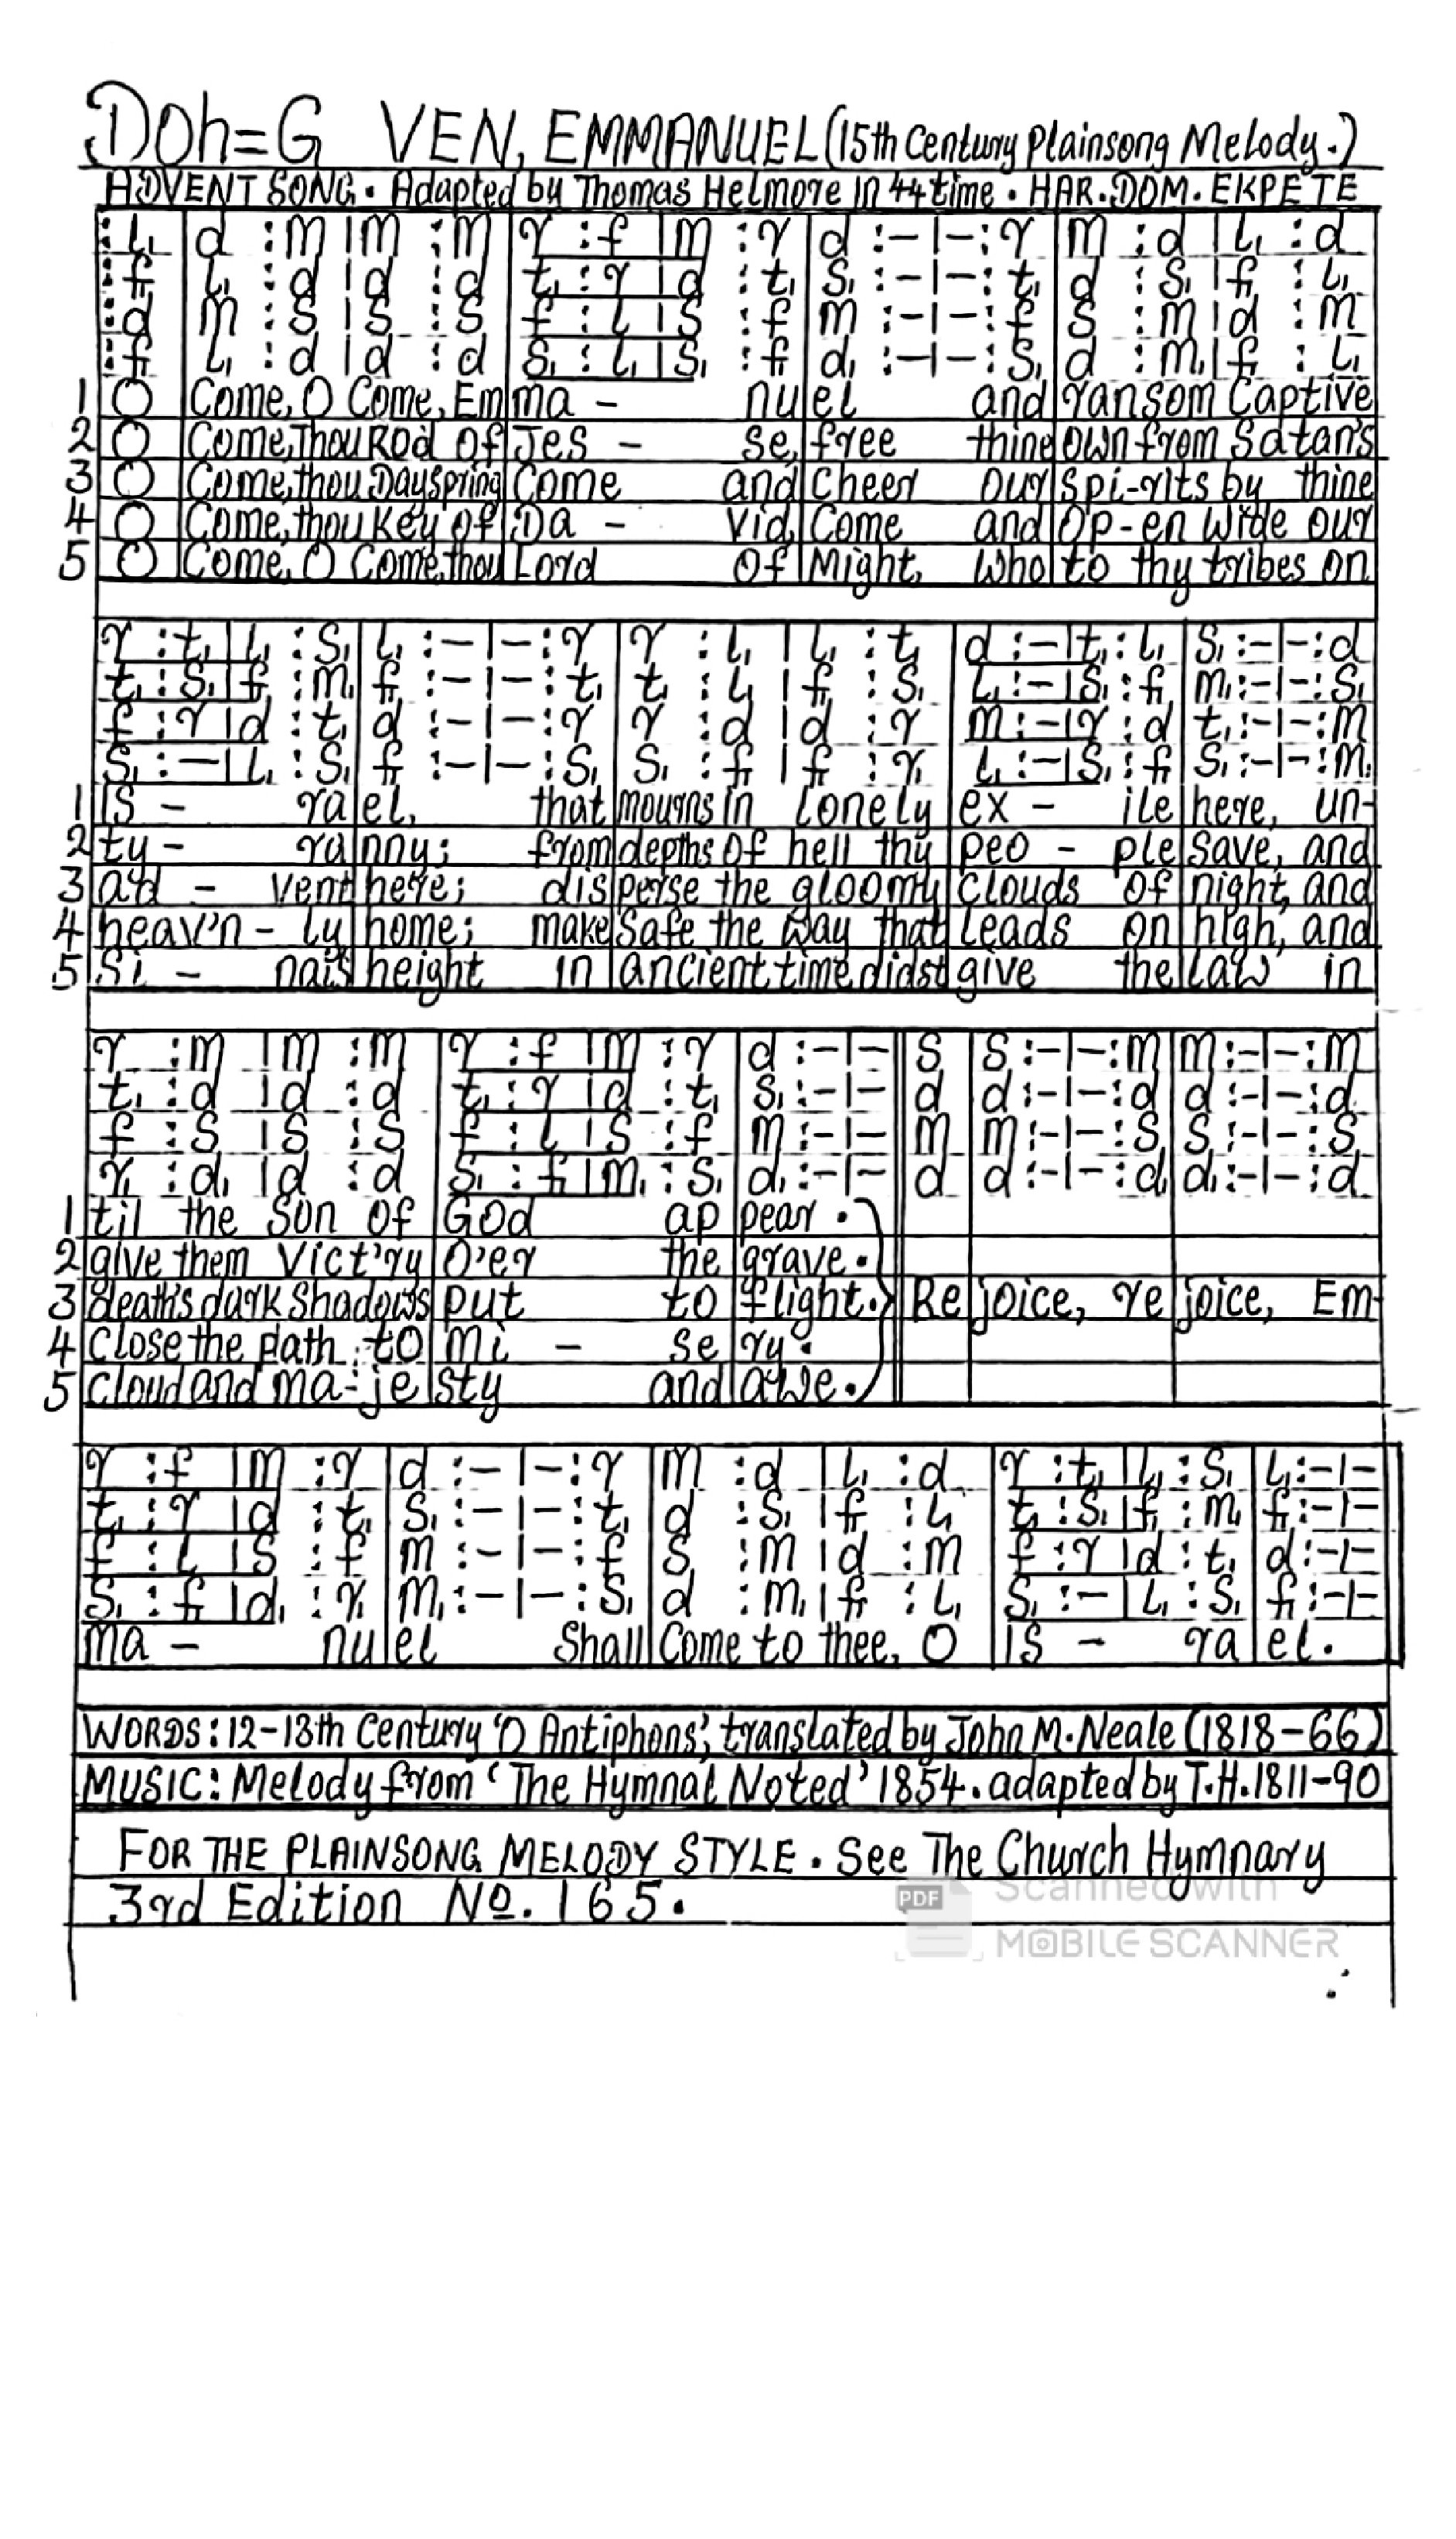 Doh=G VEN, EMMANUEL (15th Century Plainsong Melody.)
ADVENT SONG. Adapted by Thomas Helmore in 44 time. HAR. DOM. EKPETE
:l, | d :m |m :m | r :f |m :r | d :-|-:r | m :d |l, :d
:f, | l, :d |d :d | t, :r |d :t, | s, :-|-:t, | d :s, |f, :l,
:d | m :s |s :s | f :l |s :f | m :-|-:f | s :m |d :m
:f, | l, :d |d :d | s, :l, |s, :f | d, :-|-:s, | d :m, |f, :l,
1 O Come, O Come, Emma - nuel and ransom Captive
2 O Come, Thou Rod of Jes - se, free thine own from Satan's
3 O Come, thou Dayspring Come and Cheer our Spi-rits by thine
4 O Come, thou Key of Da - vid, Come and Op-en Wide our
5 O Come, O Come, thou Lord Of Might, Who to thy tribes on
r :t, |l, :s, | l, :-|-:r | r :l, |l, :t, | d :-|t, :l, | s, :-|-:d
t, :s, |f, :m, | f, :-|-:t, | t, :l, |f, :s, | l, :-|s, :f, | m, :-|-:s,
f :r |d :t, | d :-|-:r | r :d |d :r | m :-|r :d | t, :-|-:m
s, :-|l, :s, | f, :-|-:s, | s, :f, |f, :r, | l, :-|s, :f, | s, :-|-:m,
1 Is - rael, that mourns in lonely ex - ile here, un-
2 ty - ranny; from depths of hell thy peo - ple Save, and
3 ad - vent here; disperse the gloomy Clouds of night, and
4 heav'n - ly home; make Safe the way that leads on high, and
5 Si - nai's height in ancient time didst give the law in
r :m |m :m | r :f |m :r | d :-|- || s | s :-|-:m | m :-|-:m
t, :d |d :d | t, :r |d :t, | s, :-|- || d | d :-|-:d | d :-|-:d
f :s |s :s | f :l |s :f | m :-|- || m | m :-|-:s | s :-|-:s
r, :d, |d :d | s, :f, |m, :s, | d, :-|- || d | d :-|-:d, | d, :-|-:d
1 til the Son Of God ap pear.
2 give them Vict'ry O'er the grave.
3 death's dark Shadows put to flight. Rejoice, rejoice, Em-
4 Close the path to mi - se ry.
5 Cloud and ma-jesty and awe.
r :f |m :r | d :-|-:r | m :d |l, :d | r :t, |l, :s, | l, :-|-
t, :r |d :t, | s, :-|-:t, | d :s, |f, :l, | t, :s, |f, :m, | f, :-|-
f :l |s :f | m :-|-:f | s :m |d :m | f :r |d :t, | d :-|-
s, :f, |d, :r, | m, :-|-:s, | d :m, |f, :l, | s, :-|l, :s, | f, :-|-
ma - nuel Shall Come to thee, O Is - rael.
WORDS: 12-13th Century 'O Antiphons', translated by John M. Neale (1818-66)
MUSIC: Melody from 'The Hymnal Noted' 1854. adapted by T.H. 1811-90
FOR THE PLAINSONG MELODY STYLE. See The Church Hymnary
3rd Edition No. 165.
PDF Scanned with
MOBILE SCANNER